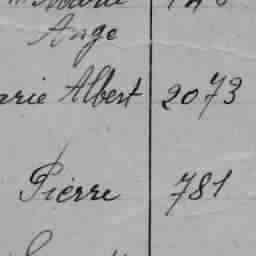 Ange
arie Albert 2073
Pierre 781